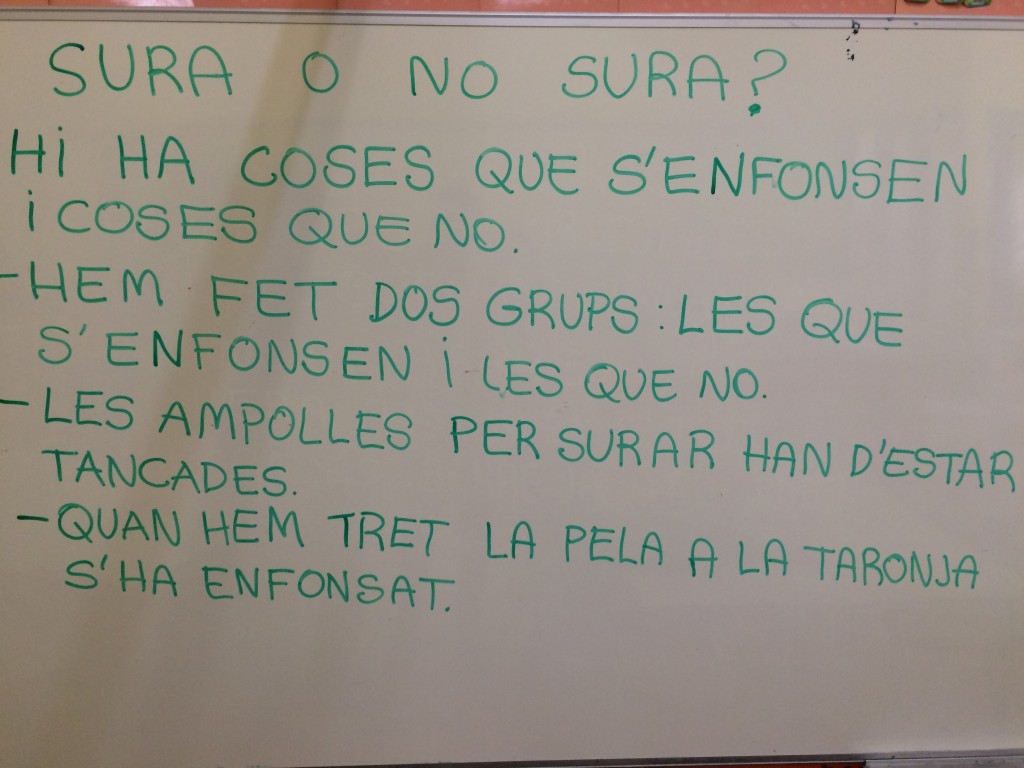 SURA O NO SURA?
Hi HA COSES QUE S'ENFONSEN
i COSES QUE NO.
-HEM FET DOS GRUPS: LES QUE
S'ENFONSEN i LES QUE NO.
-LES AMPOLLES PER SURAR HAN D'ESTAR
TANCADES.
-QUAN HEM TRET LA PELA A LA TARONJA
S'HA ENFONSAT.